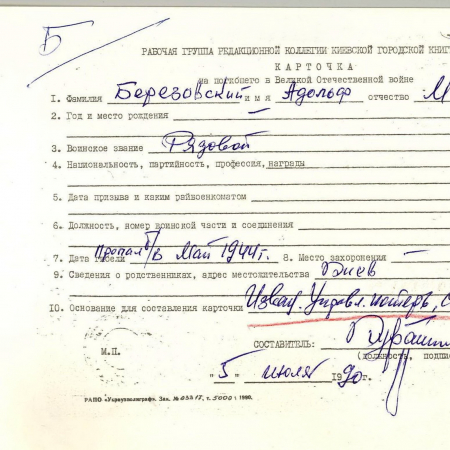 Б
РАБОЧАЯ ГРУППА РЕДАКЦИОННОЙ КОЛЛЕГИИ КИЕВСКОЙ ГОРОДСКОЙ КНИГ
КАРТОЧКА
на погибшего в Великой Отечественной войне
1. Фамилия Березовский имя Адольф отчество М
2. Год и место рождения —
3. Воинское звание Рядовой
4. Национальность, партийность, профессия, награды
5. Дата призыва и каким райвоенкоматом
6. Должность, номер воинской части и соединения
7. Дата гибели Пропал б/в май 1944г. 8. Место захоронения —
9. Сведения о родственниках, адрес местожительства
10. Основание для составления карточки Извещ. Управл. потерь,
СОСТАВИТЕЛЬ:
(должность, подпис
М.П.
"5" июля 1990г.
РАПО «Укрвузполиграф». Зак. № 0557. т. 5000 1990.